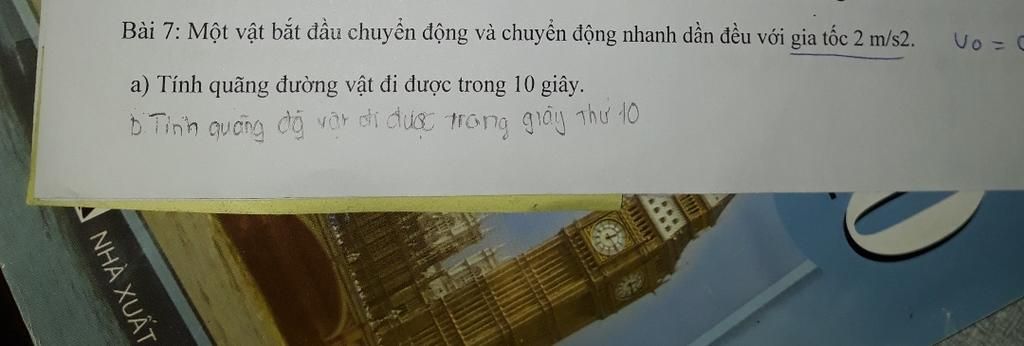 Bài 7: Một vật bắt đầu chuyển động và chuyển động nhanh dần đều với gia tốc 2 m/s2. v0 =
a) Tính quãng đường vật đi được trong 10 giây.
b. Tính quãng đg vật đi được trong giây thứ 10
NHÀ XUẤT